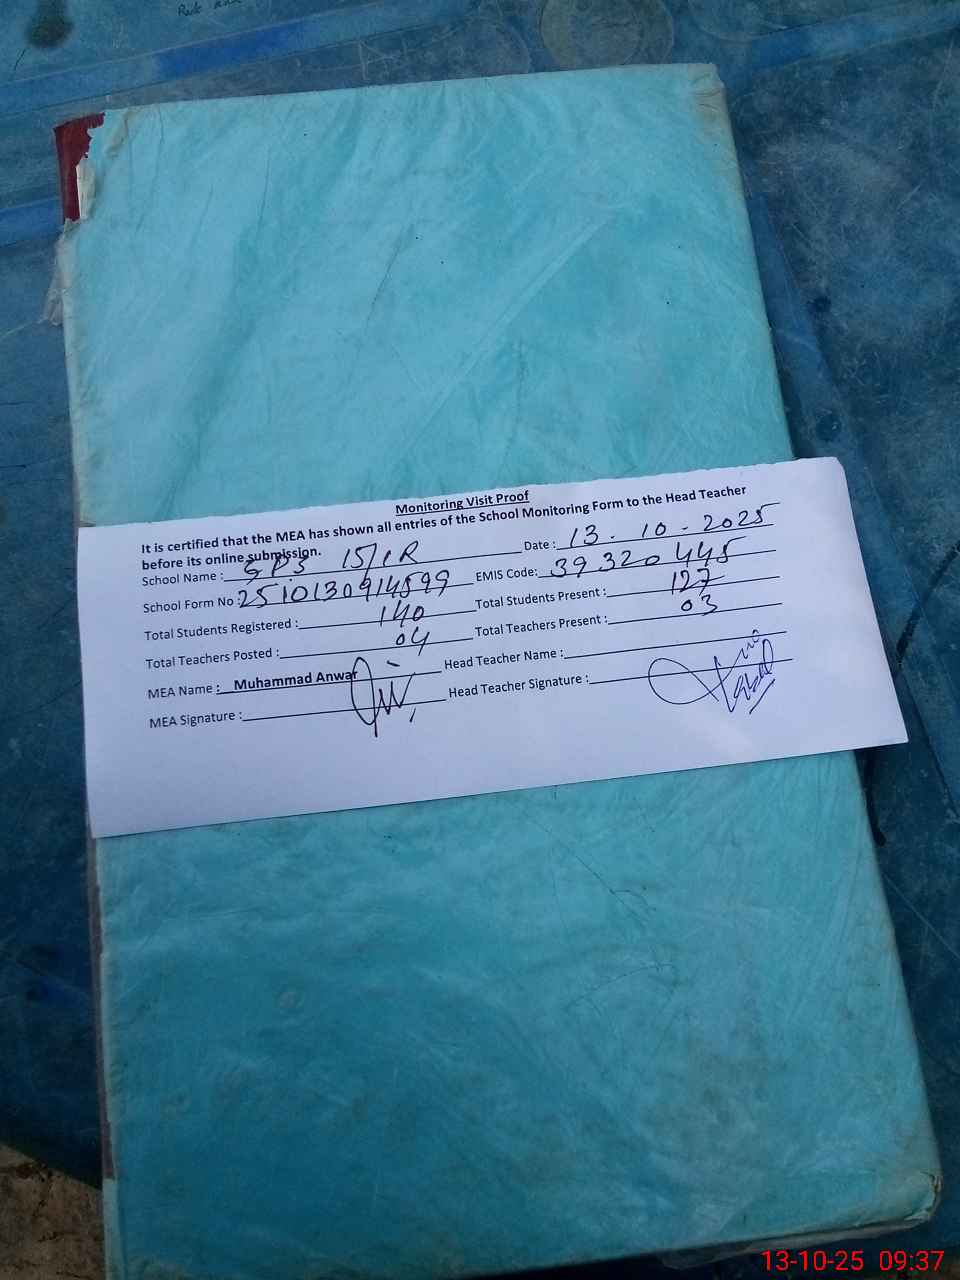 Monitoring Visit Proof
It is certified that the MEA has shown all entries of the School Monitoring Form to the Head Teacher
before its online submission.
School Name : GPS 15/1R Date : 13-10-2025
School Form No : 2510130914599 EMIS Code: 39320445
Total Students Registered : 140 Total Students Present : 127
Total Teachers Posted : 04 Total Teachers Present : 03
MEA Name : Muhammad Anwar Head Teacher Name :
MEA Signature : Head Teacher Signature :
13-10-25 09:37